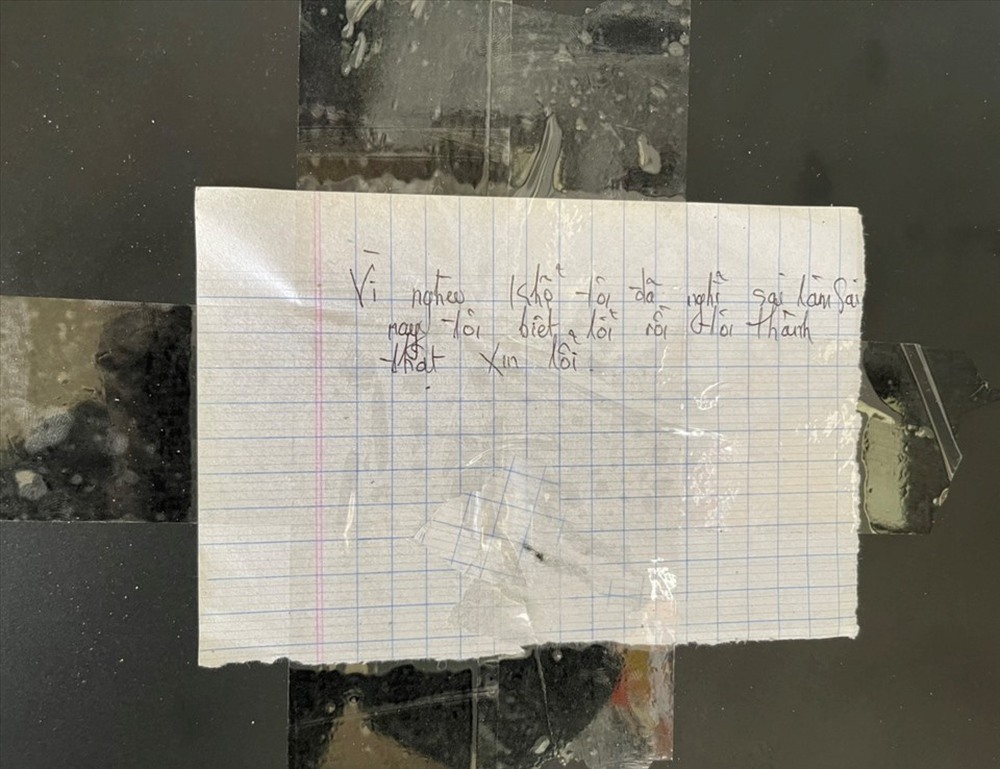 Vì nghèo khổ tôi đã nghĩ sai lầm Giờ
nay tôi biết lỗi rồi tôi thành
thật xin lỗi.